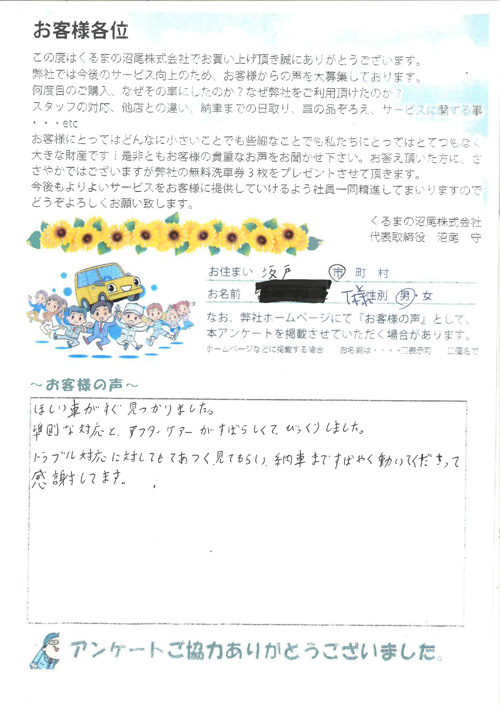 お客様各位
この度はくるまの沼尾株式会社でお買い上げ頂き誠にありがとうございます。
弊社では今後のサービス向上のため、お客様からの声を大募集しております。
何度目のご購入、なぜその車にしたのか？なぜ弊社をご利用頂けたのか？
スタッフの対応、他店との違い、納車までの日取り、車の品ぞろえ、サービスに関する事
・・・etc
お客様にとってはどんなに小さいことでも些細なことでも私たちにとってはとてつもなく
大きな財産です！是非ともお客様の貴重なお声をお聞かせ下さい。お答え頂いた方に、さ
さやかではございますが弊社の無料洗車券３枚をプレゼントさせて頂きます。
今後もよりよいサービスをお客様に提供していけるよう社員一同精進してまいりますので
どうぞよろしくお願い致します。
くるまの沼尾株式会社
代表取締役 沼尾 守
お住まい 坂戸 市 町 村
お名前 T様 性別 男・女
なお、弊社ホームページにて『お客様の声』として、
本アンケートを掲載させていただく場合があります。
ホームページなどに掲載する場合 お名前は・・・・□表示可 □匿名で
～お客様の声～
ほしい車がすぐ見つかりました。
な対応と、アフターケアーがすばらしくて、びっくりしました。
トラブル対応に対してもてあつく見てもらい、納車まですばやく動いてくださって
感謝してます。
アンケートご協力ありがとうございました。